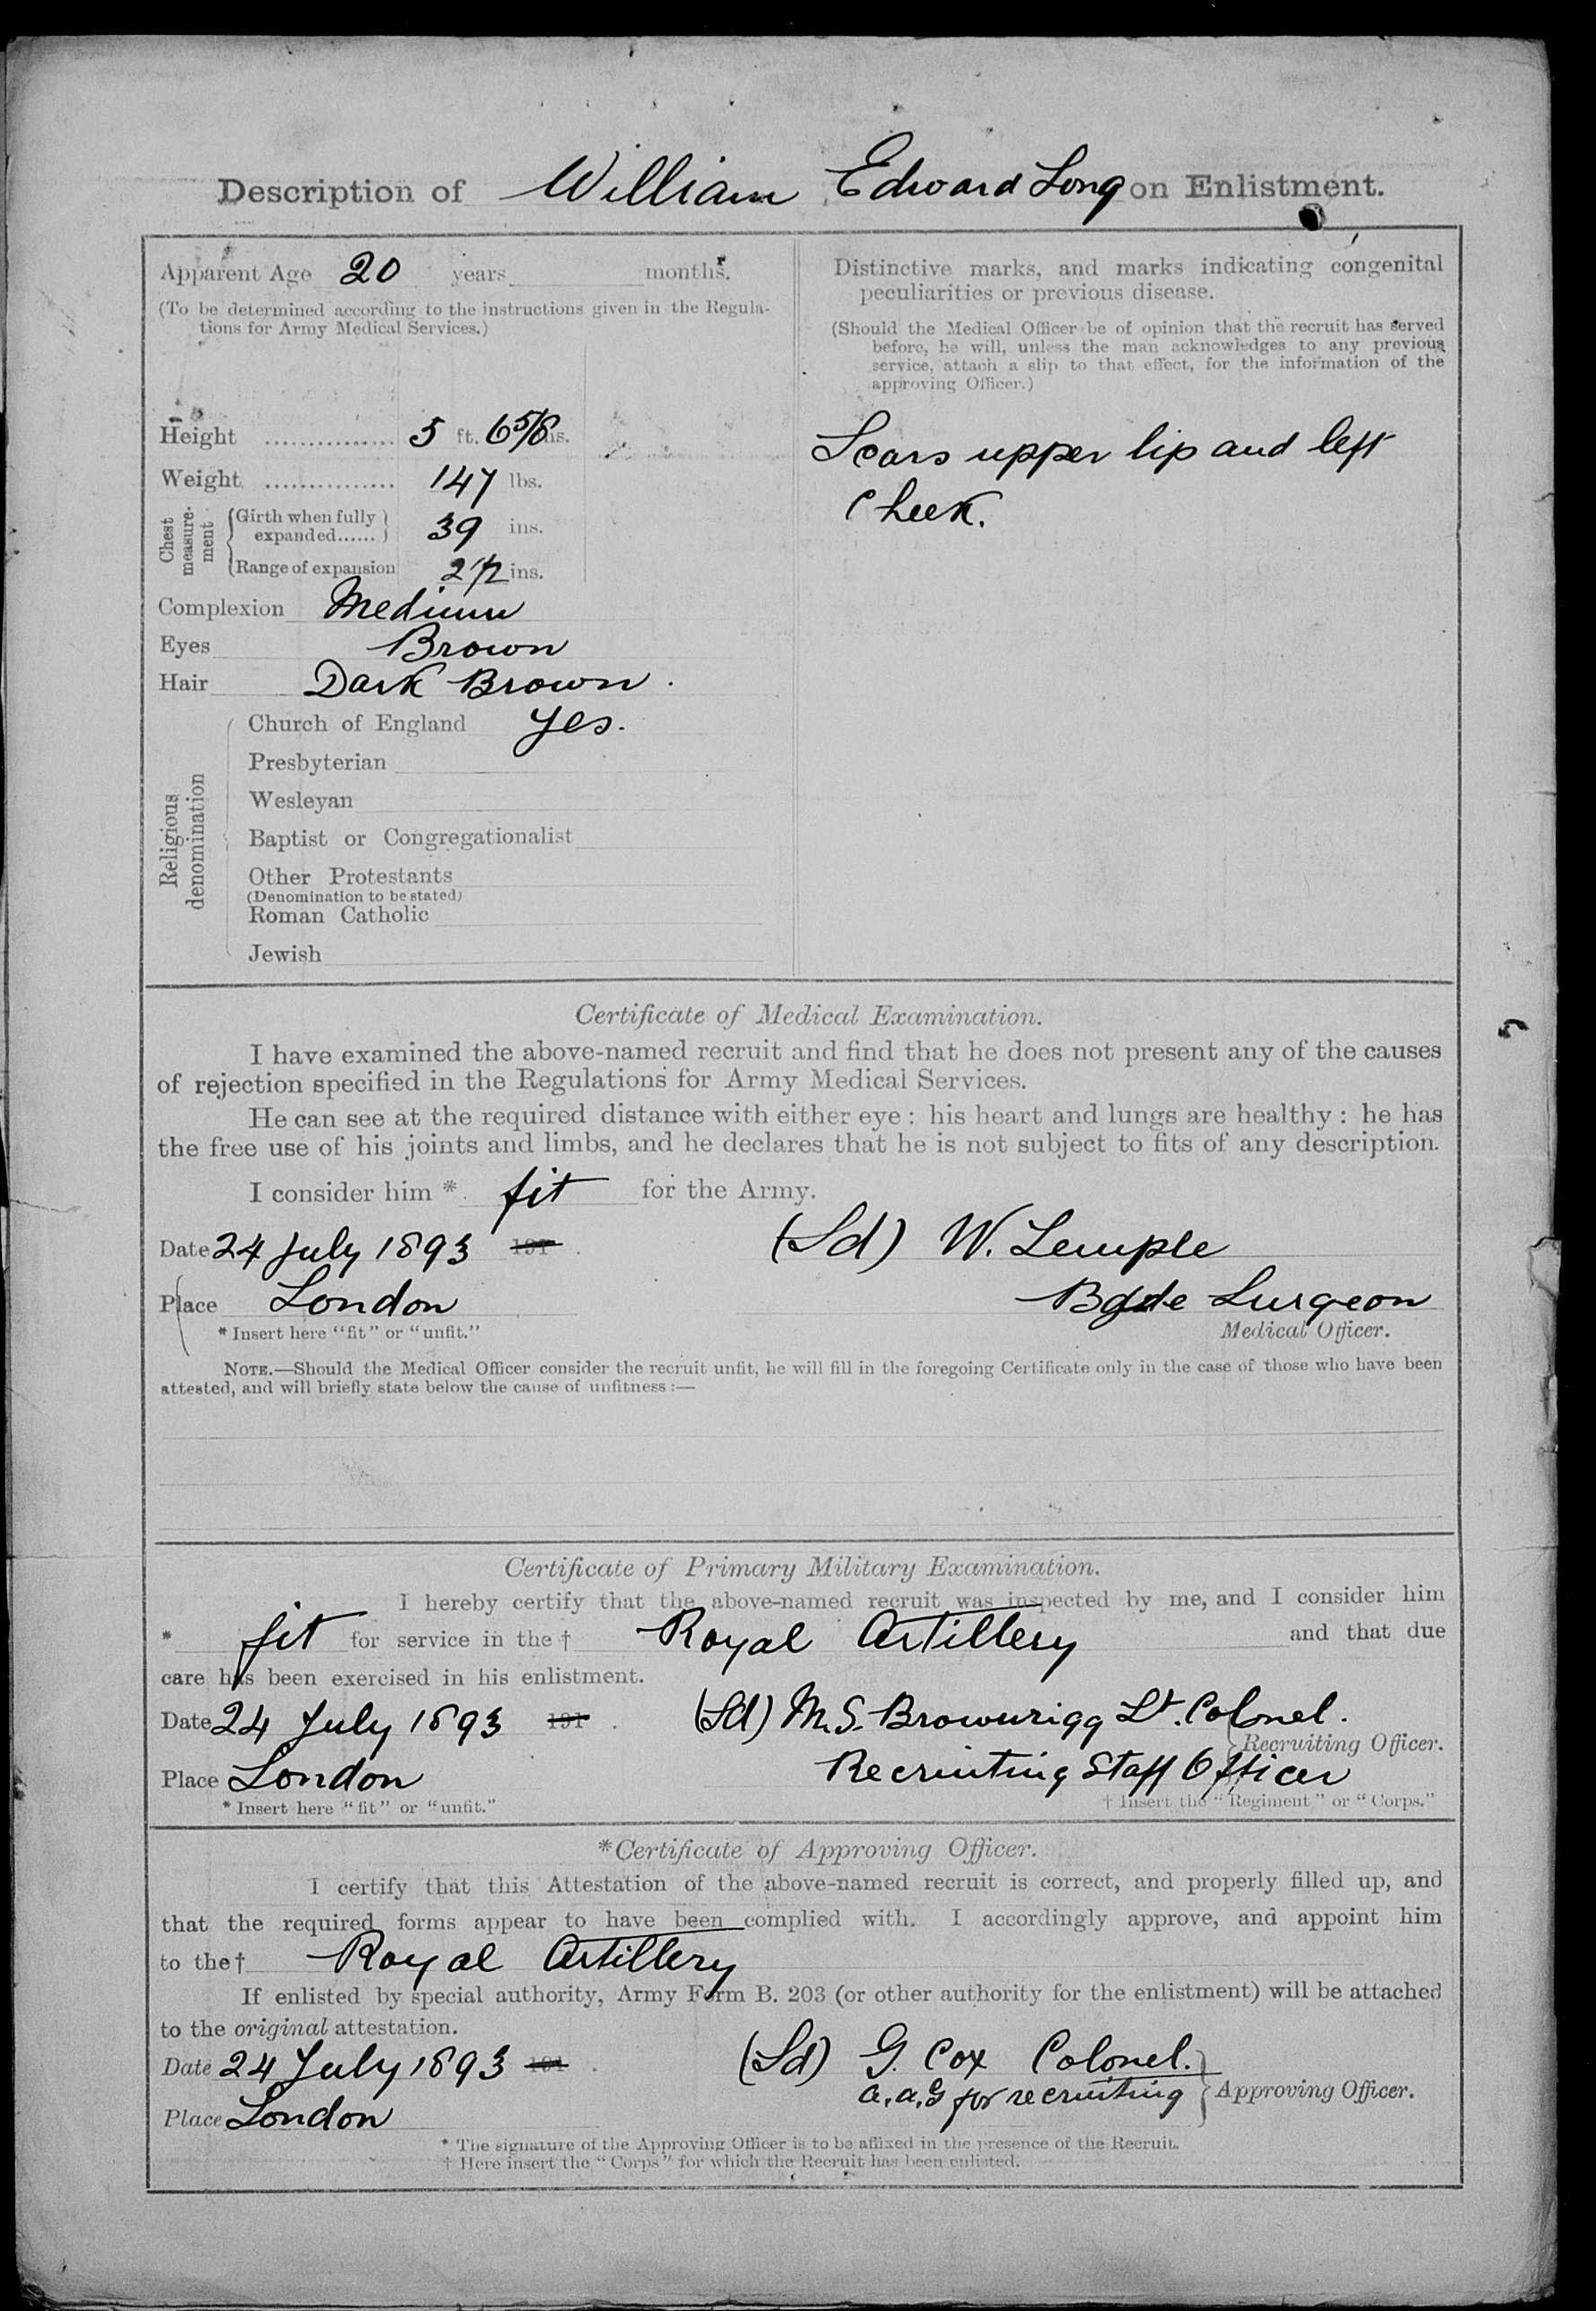 Description of William Edward Long on Enlistment.
Apparent Age 20 years months.
(To be determined according to the instructions given in the Regula-
tions for Army Medical Services.)
Height ............... 5 ft. 6 5/8 ins.
Weight ............... 147 lbs.
Chest measure-ment
Girth when fully expanded...... 39 ins.
Range of expansion 2 1/2 ins.
Complexion Medium
Eyes Brown
Hair Dark Brown.
Religious denomination
Church of England Yes.
Presbyterian
Wesleyan
Baptist or Congregationalist
Other Protestants
(Denomination to be stated)
Roman Catholic
Jewish
Distinctive marks, and marks indicating congenital
peculiarities or previous disease.
(Should the Medical Officer be of opinion that the recruit has served
before, he will, unless the man acknowledges to any previous
service, attach a slip to that effect, for the information of the
approving Officer.)
Scars upper lip and left
Cheek.
Certificate of Medical Examination.
I have examined the above-named recruit and find that he does not present any of the causes
of rejection specified in the Regulations for Army Medical Services.
He can see at the required distance with either eye: his heart and lungs are healthy: he has
the free use of his joints and limbs, and he declares that he is not subject to fits of any description.
I consider him * fit for the Army.
Date 24 July 1893 191 . (Sd) W. Temple
Place London Bgde Surgeon
* Insert here "fit" or "unfit." Medical Officer.
NOTE.—Should the Medical Officer consider the recruit unfit, he will fill in the foregoing Certificate only in the case of those who have been
attested, and will briefly state below the cause of unfitness:—
Certificate of Primary Military Examination.
I hereby certify that the above-named recruit was inspected by me, and I consider him
* fit for service in the † Royal Artillery and that due
care has been exercised in his enlistment.
Date 24 July 1893 191 . (Sd) M.S. Brownrigg Lt. Colonel.
Recruiting Officer.
Place London Recruiting Staff Officer
* Insert here "fit" or "unfit." † Insert the "Regiment" or "Corps."
*Certificate of Approving Officer.
I certify that this Attestation of the above-named recruit is correct, and properly filled up, and
that the required forms appear to have been complied with. I accordingly approve, and appoint him
to the† Royal Artillery
If enlisted by special authority, Army Form B. 203 (or other authority for the enlistment) will be attached
to the original attestation.
Date 24 July 1893 191 . (Sd) G. Cox Colonel.
a.a.G for recruiting Approving Officer.
Place London
* The signature of the Approving Officer is to be affixed in the presence of the Recruit.
† Here insert the "Corps" for which the Recruit has been enlisted.